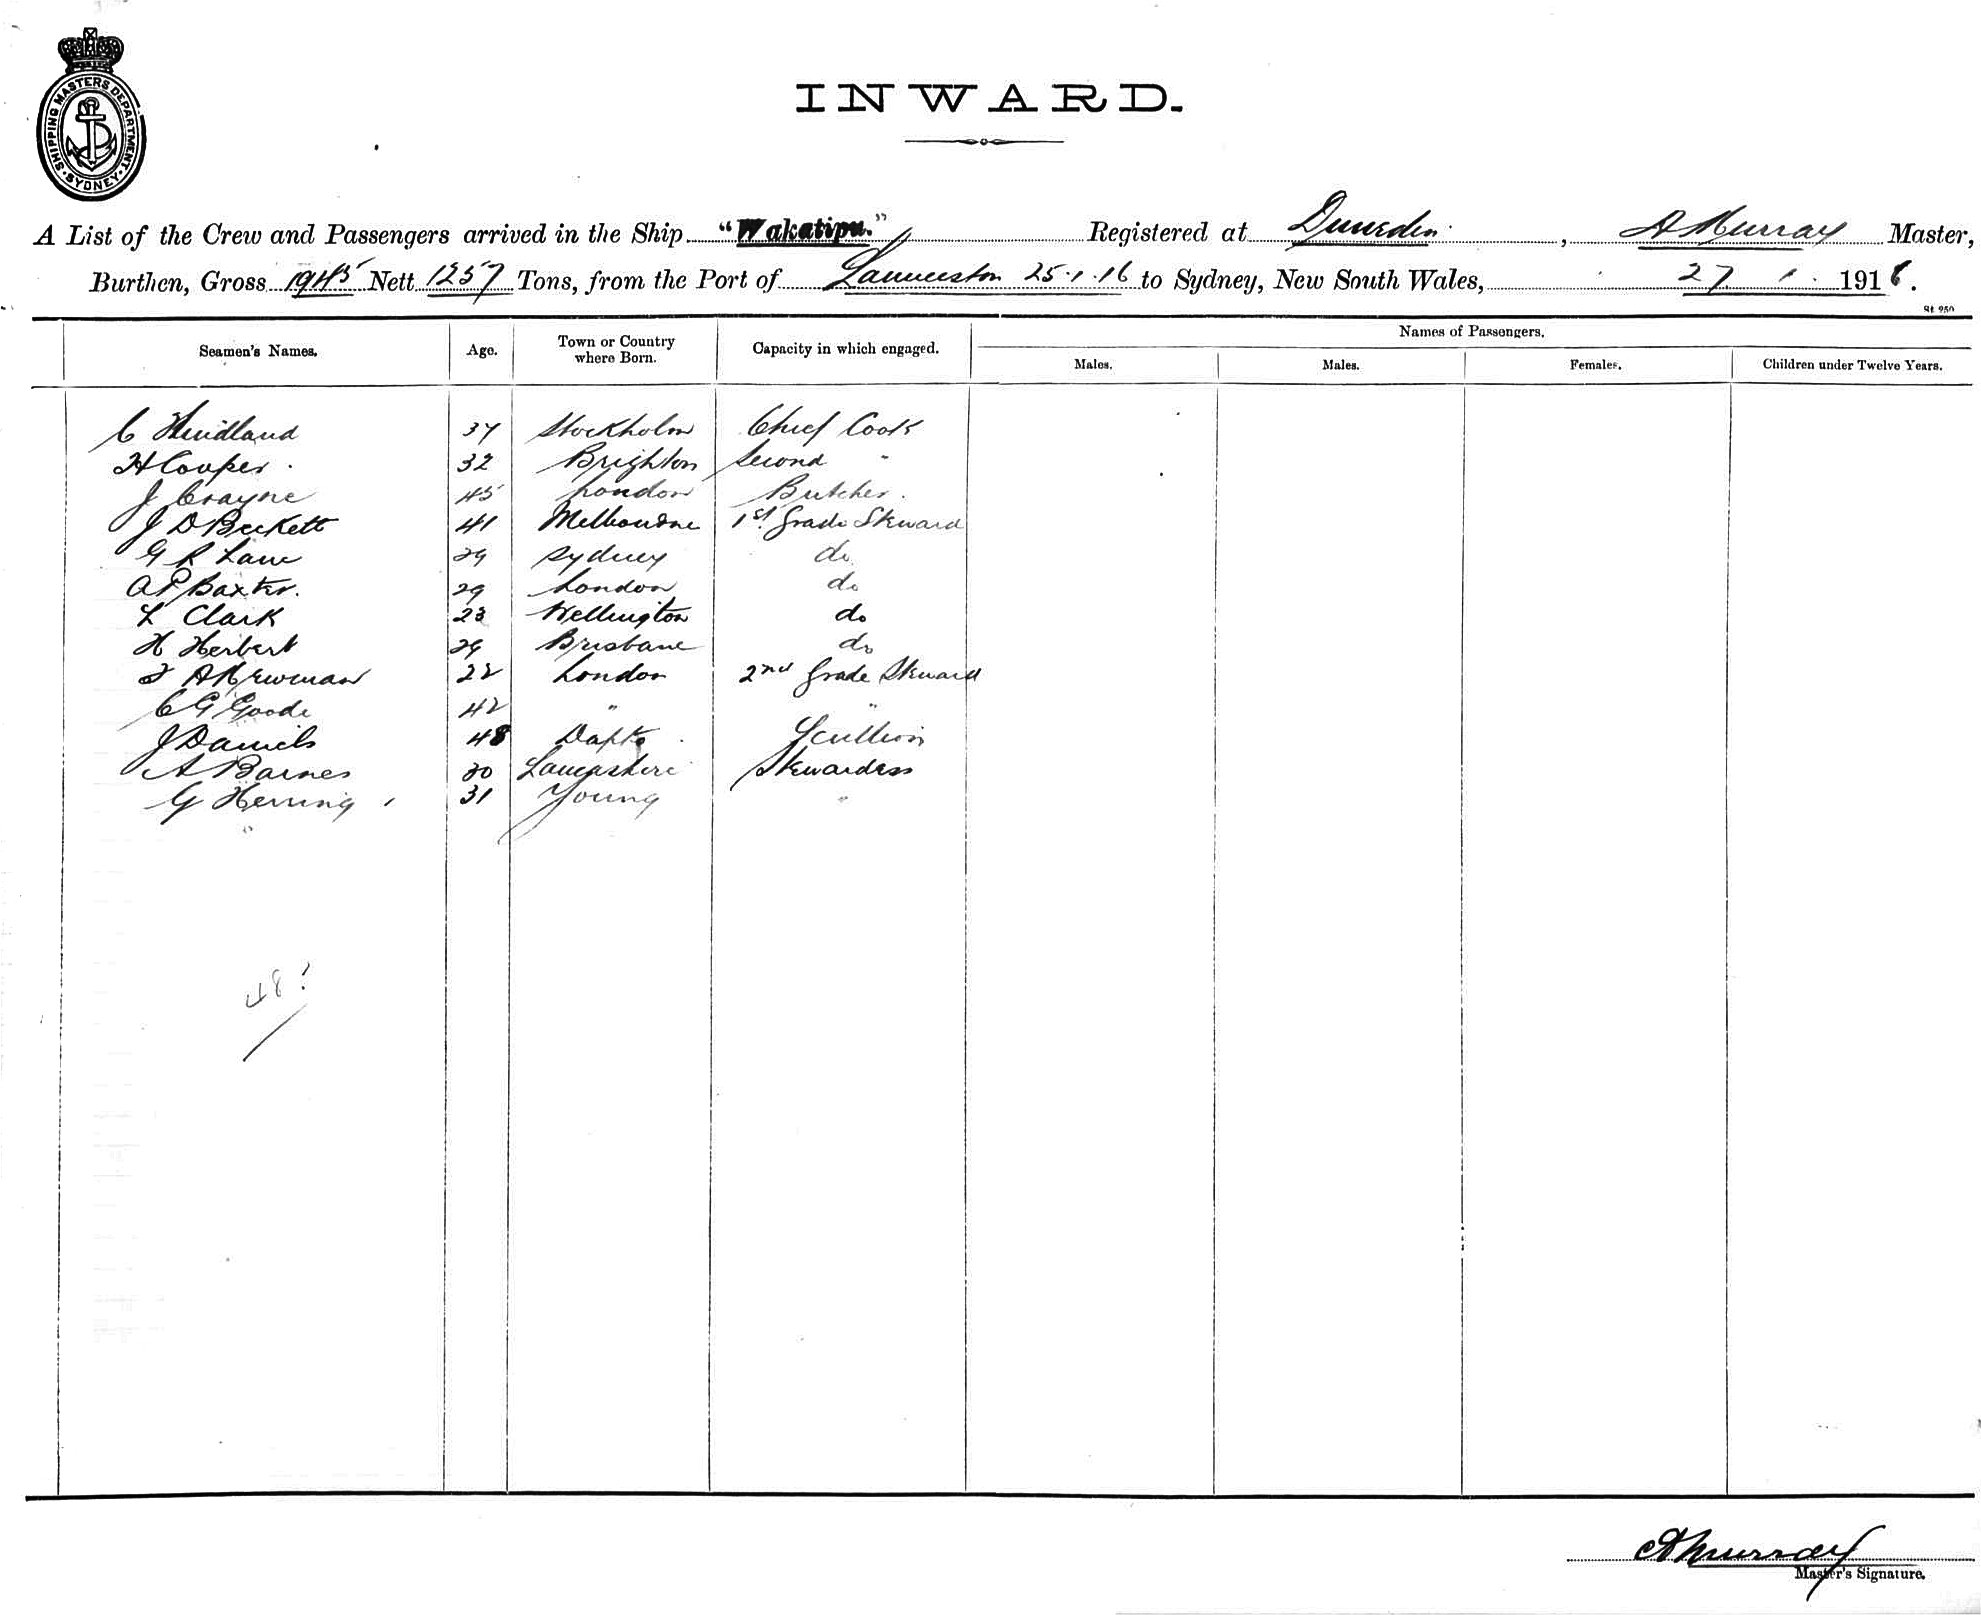 SHIPPING MASTERS DEPARTMENT. SYDNEY.
INWARD.
A List of the Crew and Passengers arrived in the Ship "Wakatipu." Registered at Dunedin, A Murray Master,
Burthen, Gross 1945 Nett 1257 Tons, from the Port of Launceston 25.1.16 to Sydney, New South Wales, 27 . 1 . 1916.
St 250
Seamen's Names. Age. Town or Country where Born. Capacity in which engaged. Names of Passengers.
Males. Males. Females. Children under Twelve Years.
C 37 Stockholm Chief Cook
H Cooper. 32 Brighton Second "
J Crayne 45 London Butcher.
J D Beckett 41 Melbourne 1st Grade Steward
G R Lane 29 Sydney do
A P Baxter. 29 London do
L Clark 23 Wellington do
H Herbert 29 Brisbane do
F A Newman 22 London 2nd Grade Steward
C G Goode 42 " "
J Daniels 48 Dapto Scullion
A Barnes 30 Lancashire Stewardess
G Herring 31 Young "
"
48
A Murray
Master's Signature.